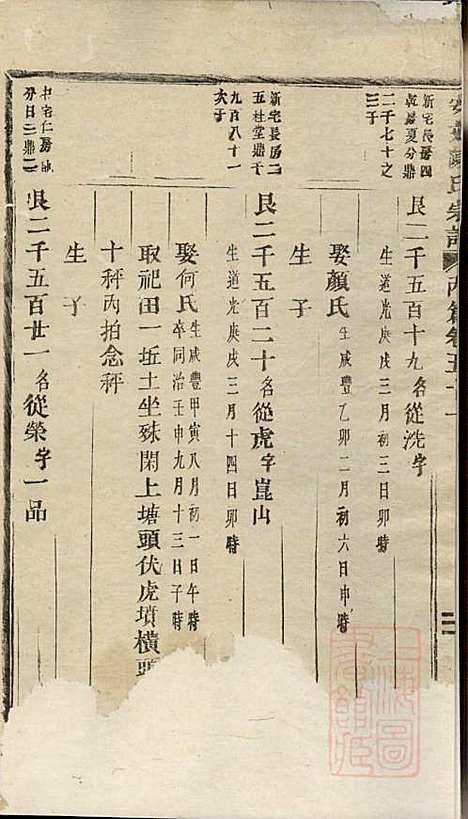 氏宗譜 內篇卷五十一
新宅長房四
乾房夏分鼎
二千七十之
三子
艮二千五百十九名從洗字
生道光庚戌三月初三日卯時
娶顏氏生咸豐乙卯二月初六日申時
生子
新宅長房二
五桂堂鼎千
九百八十一
次子
艮二千五百二十名從虎字崑山
生道光庚戌三月十四日卯時
娶何氏生咸豐甲寅八月初一日午時
卒同治壬申九月十三日子時
取祀田一坵土坐殊閑上塘頭伏虎墳橫頭
十秤丙拍念秤
生子
中宅仁房
分日三鼎二
艮二千五百廿一名從榮字一品
上海圖書館藏